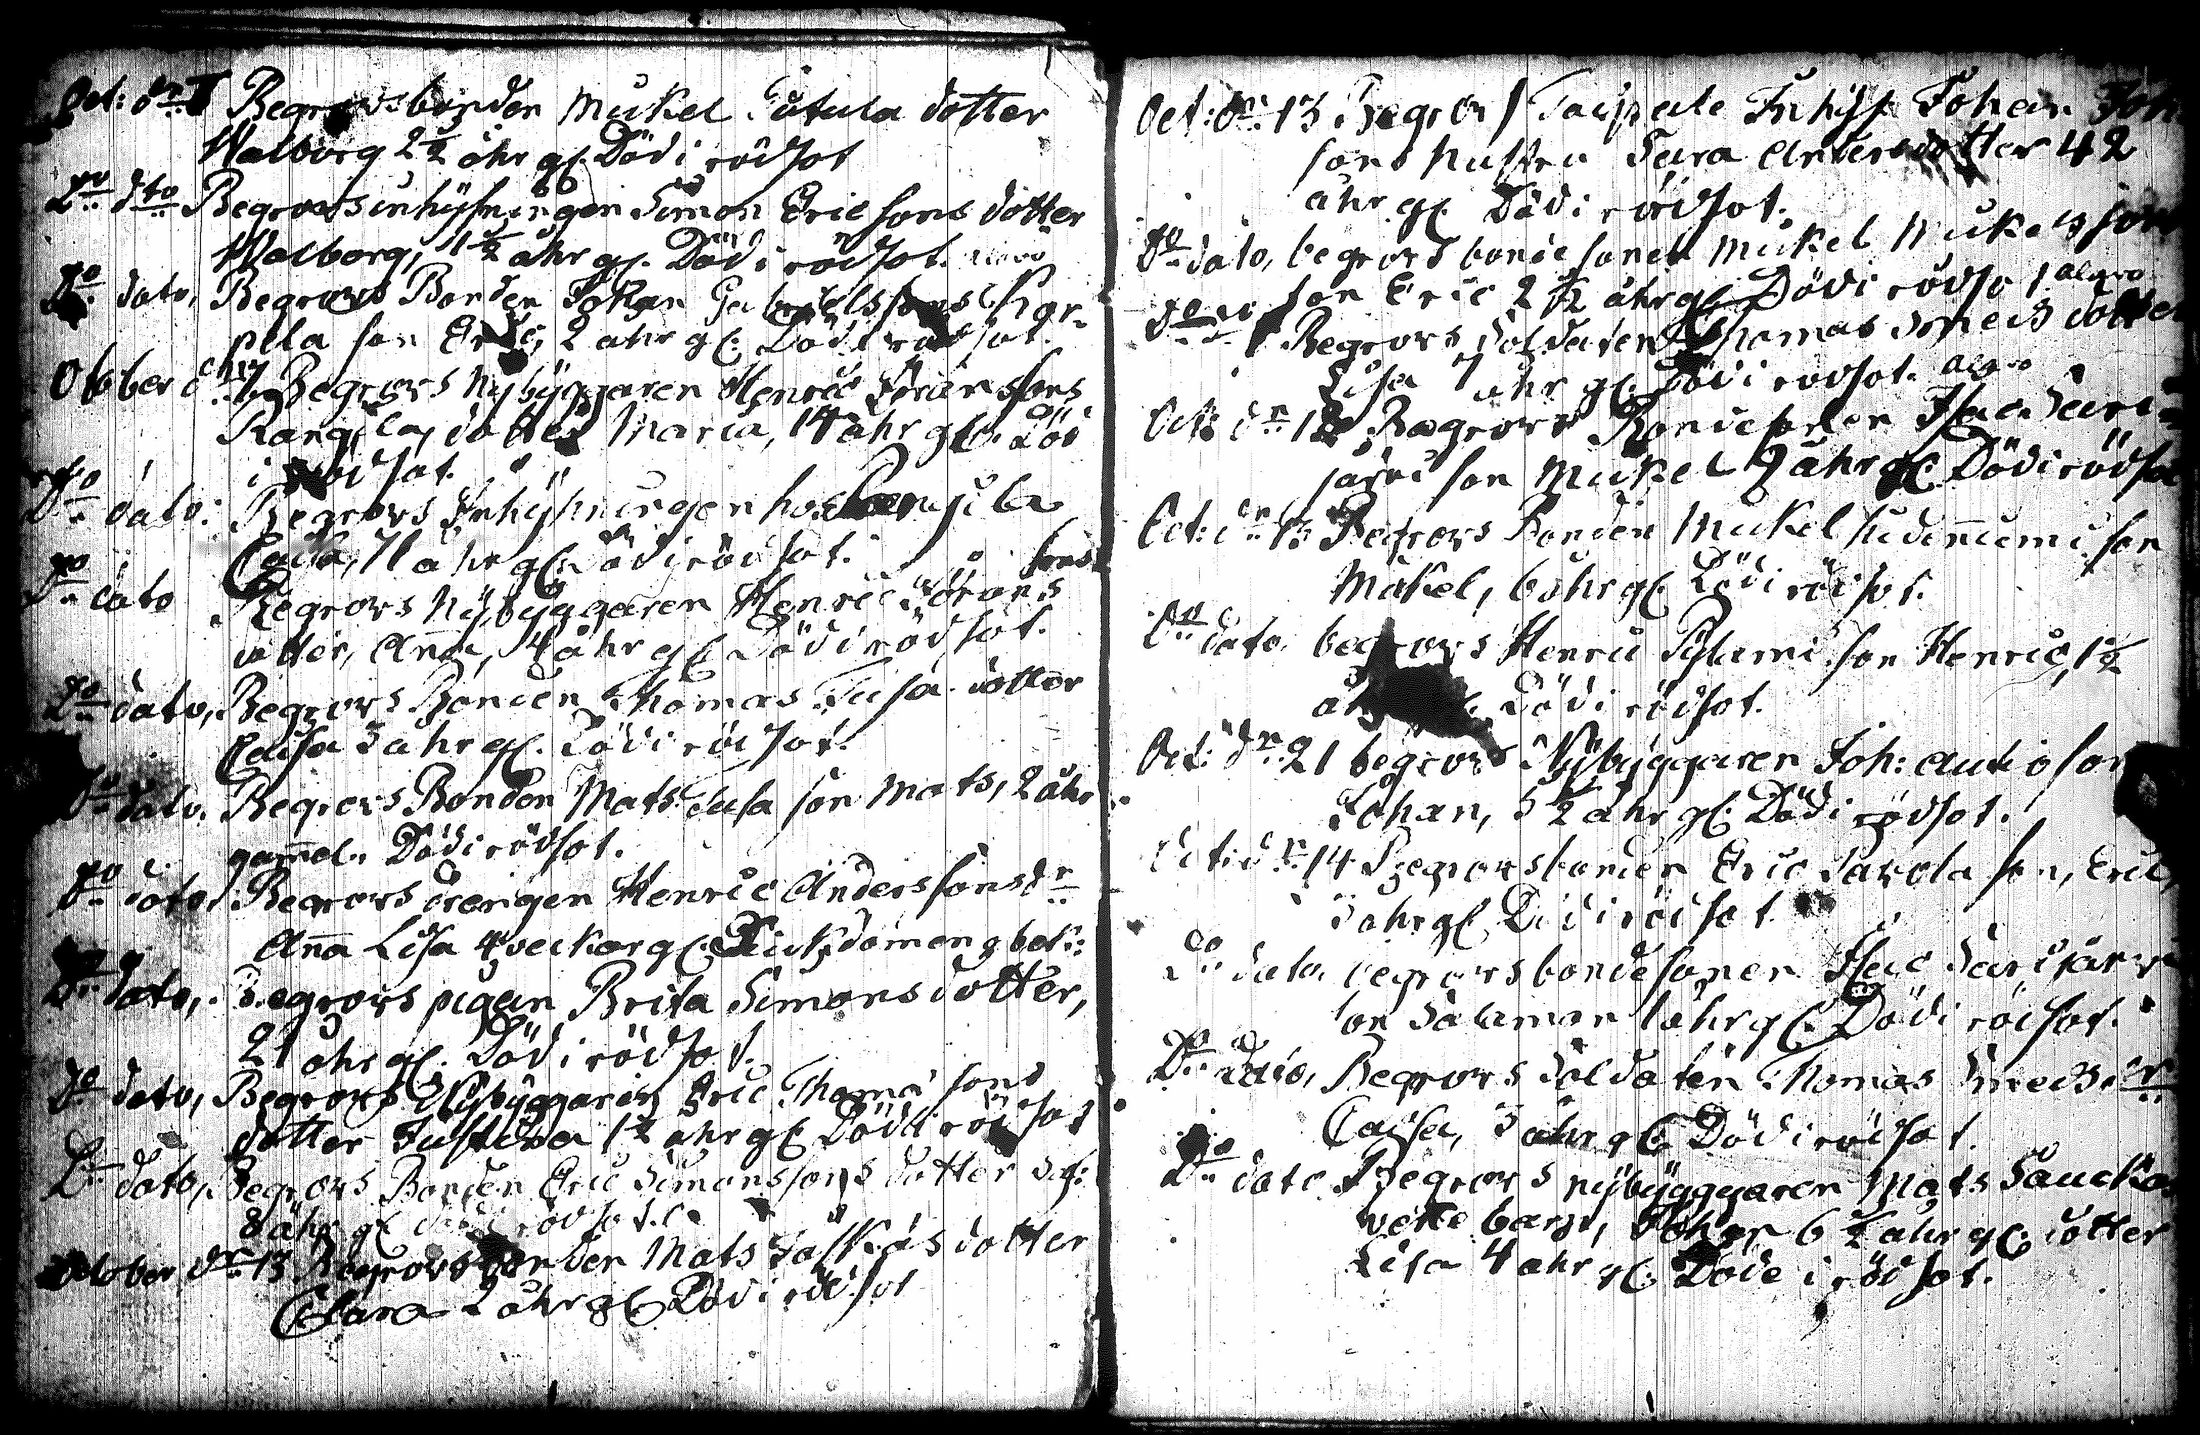 Oct: dn Begrovs bonden Mickel Tutula dotter
Walborg 2 1/2 åhr gl. Död i rödsot
Do dto Begrovs inhysningen Simon Ericsons dotter
Walborg, 1 1/2 åhr gl. Död i rödsot.
Do dato, Begrovs Bonden Johan Gabrielssons
son Eric, 2 åhr gl: Död i rödsot.
October dn Begrovs Nybyggaren Henric
dotter Maria, 14 åhr gl. Död
i rödsot.
Do dato: Begrovs Inhysningen hos
Caisa, 71 åhr gl. Död i rödsot.
Do dato Begrovs Nybyggaren Henric Görans sons
dotter, Anna, 4 åhr gl Död i rödsot.
Do dato, Begrovs Bonden Thomas Tusa dotter
Caisa 3 åhr gl. Död i rödsot.
Do dato. Begrovs Bonden Mats Tusa son Mats, 2 åhr
gammal. Död i rödsot.
Do dato, Begrovs drengen Henric Anderssons dr
Anna Lisa 4 veckor gl. Siukdomen obek:
Do dato, Begrovs pigan Brita Simonsdotter,
21 åhr gl. Död i rödsot.
Do dato, Begrovs Nybyggaren Eric Thomasons
dotter Justina 1 1/2 åhr gl Död i rödsot
Do dato, Begrovs Bonden Eric Simonssons dotter
8 åhr gl död i rödsot.
October dn 13 Begrovs bonden Mats dotter
Clara 2 åhr gl Död i rödsot
Oct: dn 13 Begrovs Taipale Inhys Johan Johan
sons hustru Sara Andersdotter 42
åhr gl. Död i rödsot.
Do dato, begrovs bondesonen Mickel Mickelsson
son Eric 2 1/2 åhr gl Död i rödsot
Do Begrovs Soldaten Thomas Smeds dotter
Lisa 7 åhr gl. Död i rödsot.
Oct: dn Begrovs Bondesonen Isac Sari-
järvi son Mickel 9 åhr gl Död i rödsot
Oct: dn 13 Begrovs Bonden Mickel Hudanniemi son
Mickel, 6 åhr gl. Död i rödsot.
Do dato, begrovs Henric son Henric, 1 1/2
Död i rödsot.
Oct: dn 21 begrovs Nybyggaren Joh: Autio son
Johan, 5 1/2 åhr gl. Död i rödsot.
Oct: dn 14 Begrovs bonden Eric Pavola son, Eric,
3 åhr gl. Död i rödsot
Do dato begrovs bondesonen Isac Sarijärvi
son Salamon 1 åhr gl. Död i rödsot.
Do dato, Begrovs Soldaten Thomas Smeds dr
Caisa, 3 åhr gl. Död i rödsot.
Do dato Begrovs nybyggaren Mats Saucko
barn, Johan 6 1/2 åhr gl. dotter
Lisa 4 åhr gl. Döde i rödsot.